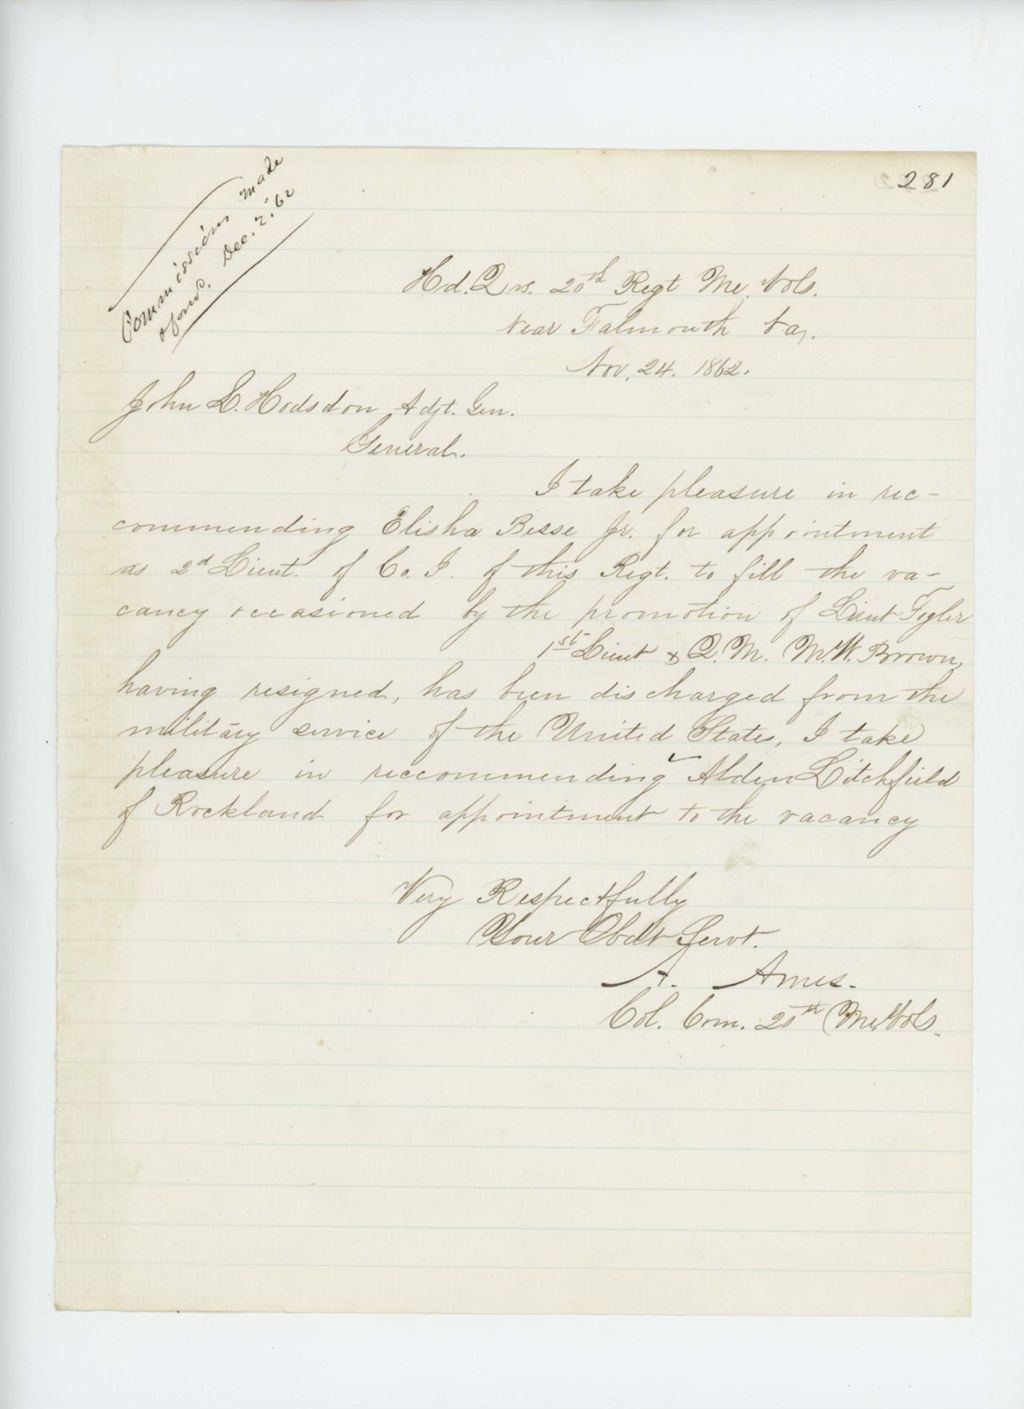 281
Commissions made
& forw'd. Dec. 2. '62
Hd. Qrs. 20th Regt Me. Vols.
Near Falmouth Va.
Nov. 24. 1862.
John L. Hodsdon, Adjt. Gen.
General.
I take pleasure in rec-
commending Elisha Besse Jr. for appointment
as 2d Lieut. of Co. I. of this Regt. to fill the va-
cancy occasioned by the promotion of Lieut Fogler
1st Lieut & Q. M. M. W. Brown,
having resigned, has been discharged from the
military service of the United States, I take
pleasure in reccommending Alden Litchfield
of Rockland for appointment to the vacancy
Very Respectfully
Your Obdt Servt.
A. Ames.
Col. Com. 20th Me. Vols.